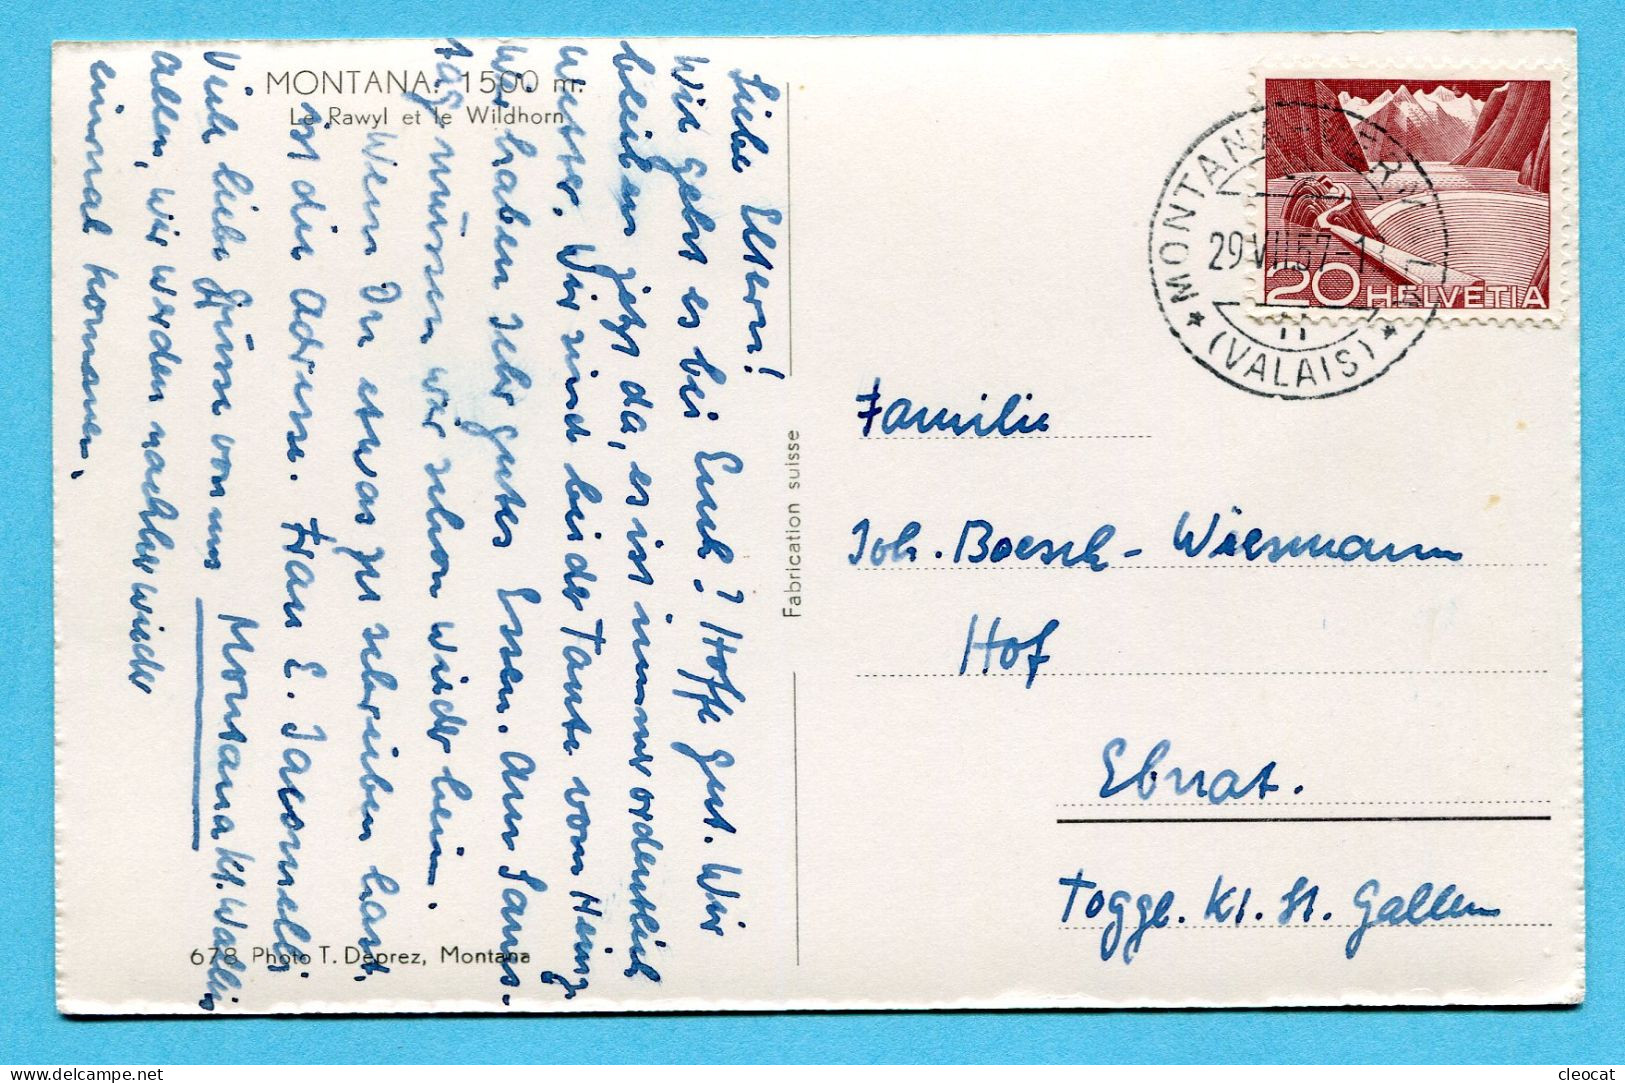 MONTANA. 1500 m.
Le Rawyl et le Wildhorn
Liebe Eltern!
Wie geht es bei Euch? Hoffe gut. Wir
bleiben jetzt da, es ist immer ordentlich
Wetter. Wir sind bei der Tante vom Heinz.
Wir haben sehr gutes Essen. Am Sams-
tag müssen wir schon wieder heim.
Wenn Du etwas zu schreiben hast,
ist die Adresse. Frau E. Jacomelli
Montana Kt. Wallis
Viele liebe Grüsse von uns
allen, wir werden nachher wieder
einmal kommen.
678 Photo T. Deprez, Montana
Fabrication suisse
20 HELVETIA
MONTANA-VERMALA
29.VII.57-1
(VALAIS)
Familie
Joh. Boesch-Wiesmann
Hof
Ebnat.
Togge. Kt. St. Gallen
cleocat